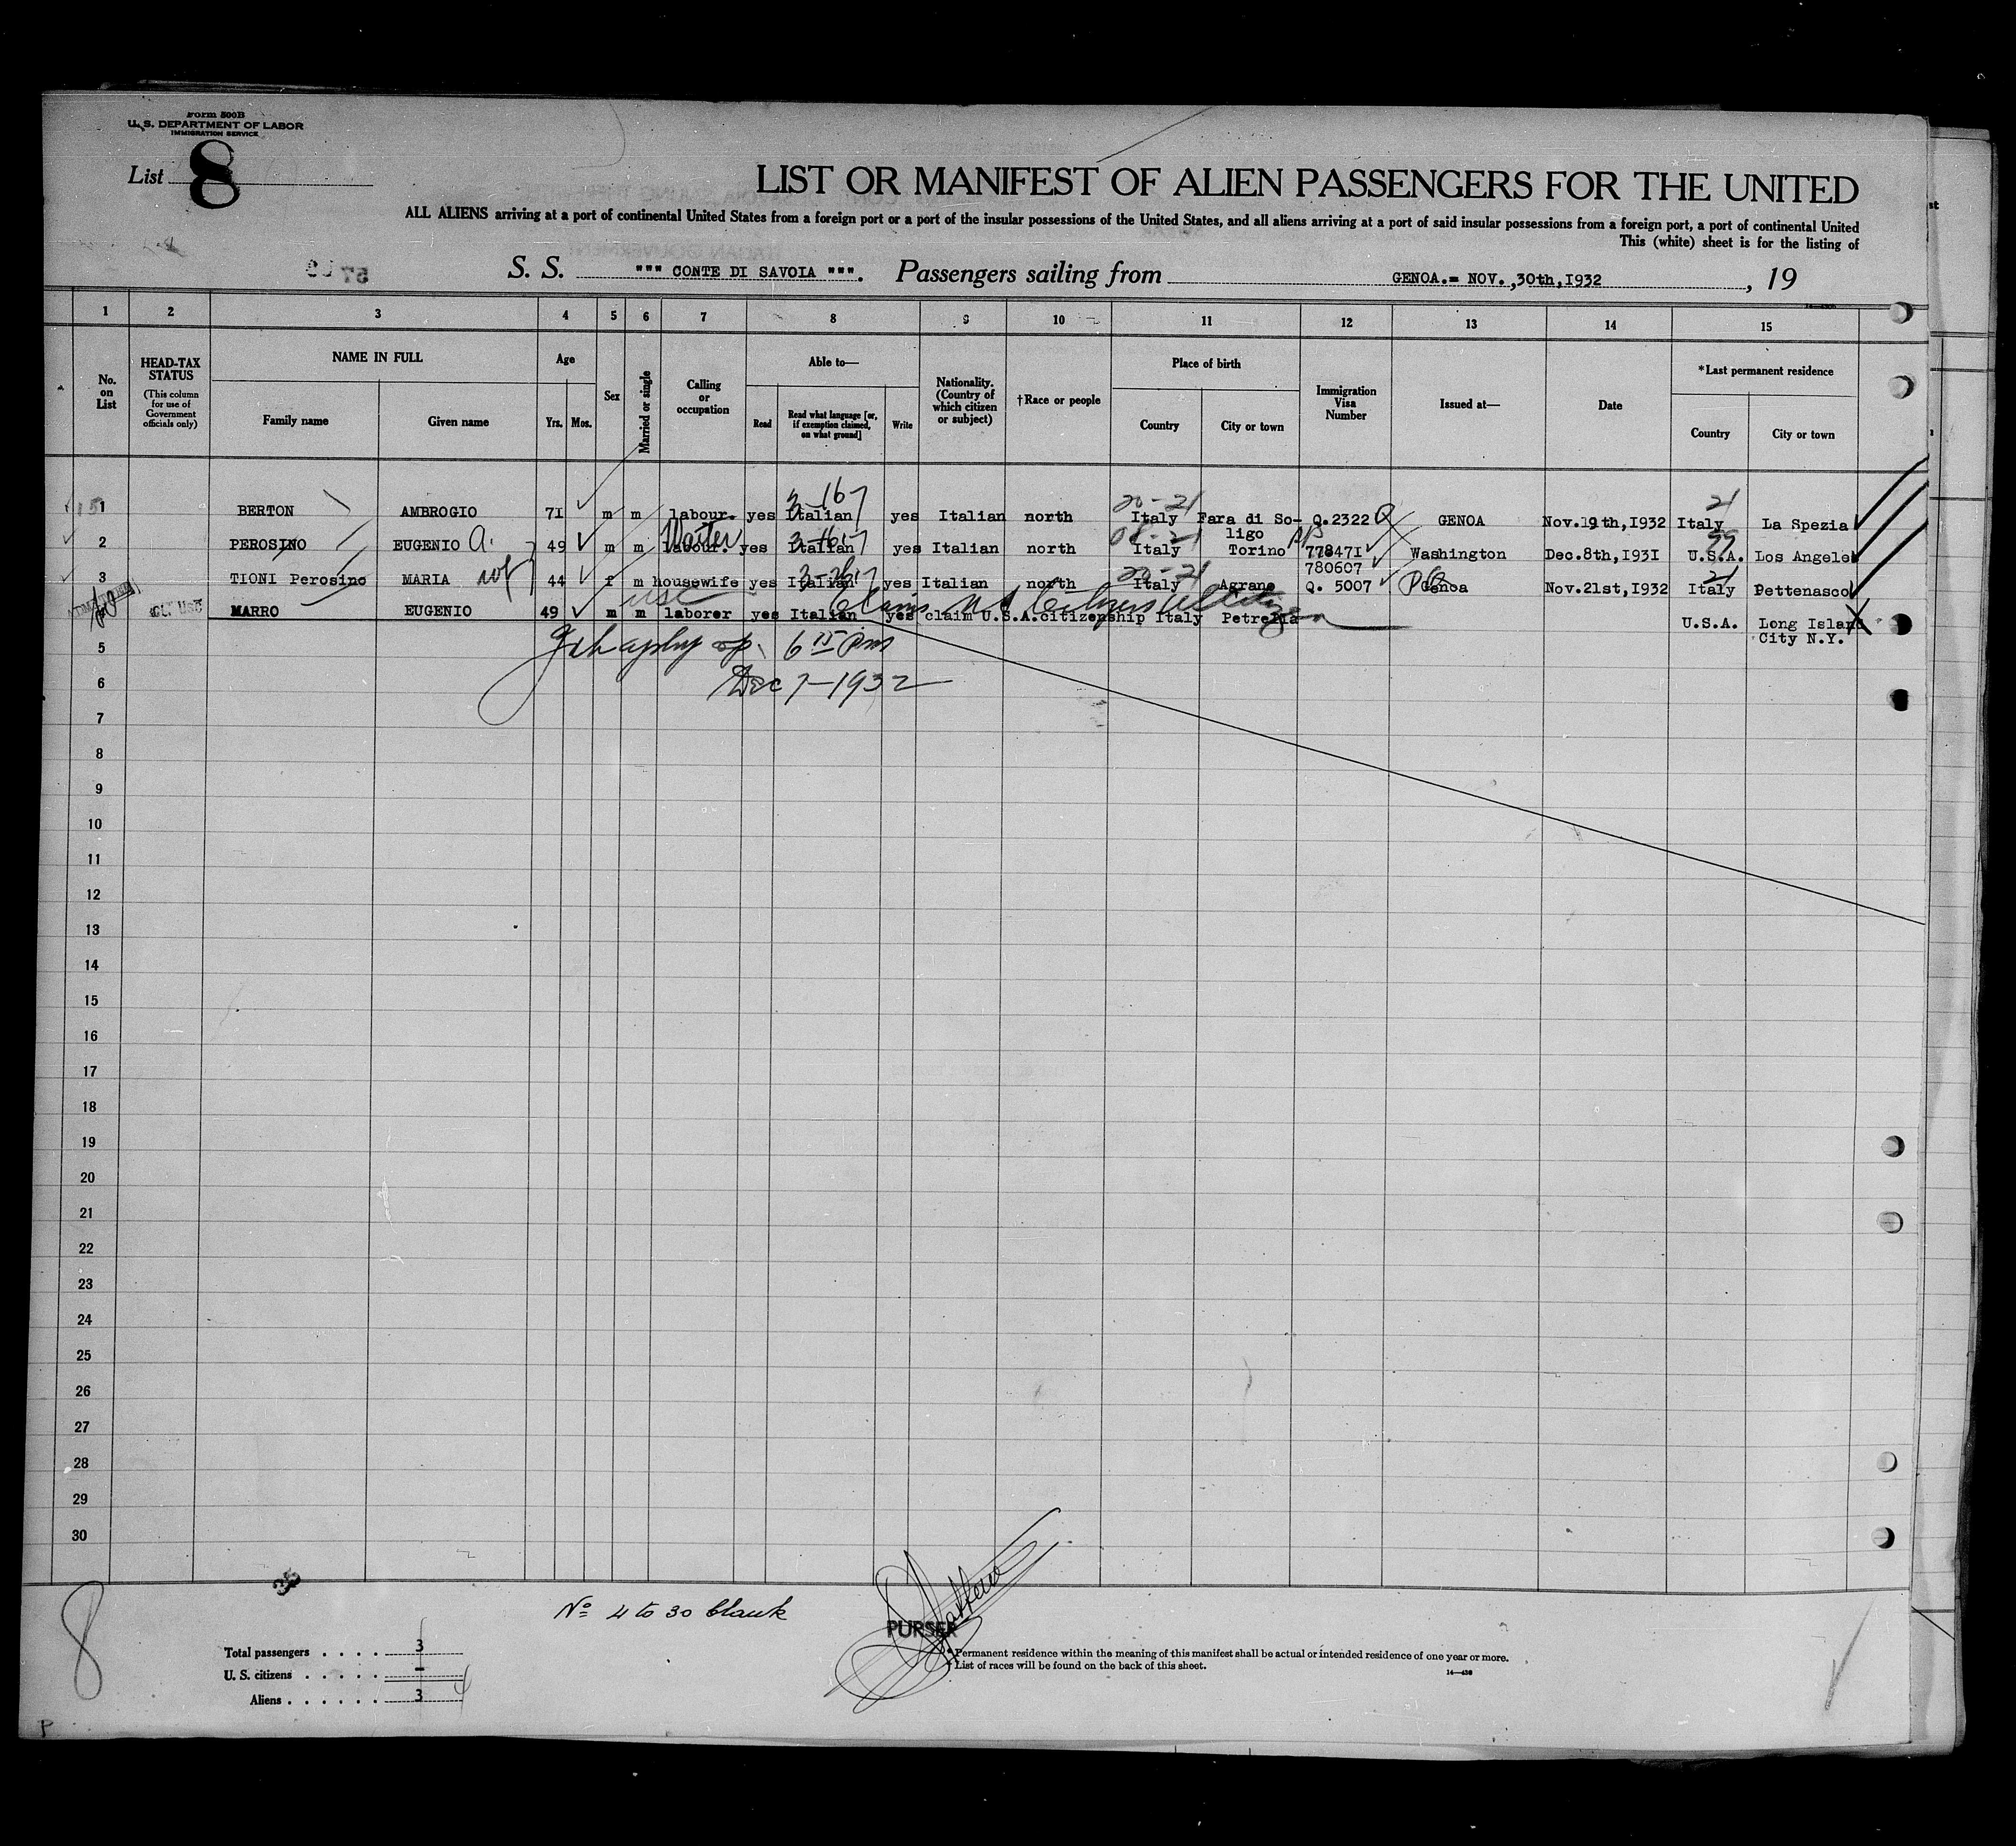 Form 500B
U. S. DEPARTMENT OF LABOR
IMMIGRATION SERVICE
List 8
LIST OR MANIFEST OF ALIEN PASSENGERS FOR THE UNITED
ALL ALIENS arriving at a port of continental United States from a foreign port or a port of the insular possessions of the United States, and all aliens arriving at a port of said insular possessions from a foreign port, a port of continental United
This (white) sheet is for the listing of
S. S. """ CONTE DI SAVOIA """. Passengers sailing from GENOA.= NOV.,30th,I932, 19
1 2 3 4 5 6 7 8 9 10 11 12 13 14 15
No. on List
HEAD-TAX STATUS
(This column for use of Government officials only)
NAME IN FULL
Family name Given name
Age
Yrs. Mos.
Sex
Married or single
Calling or occupation
Able to—
Read Read what language [or, if exemption claimed, on what ground] Write
Nationality. (Country of which citizen or subject)
†Race or people
Place of birth
Country City or town
Immigration Visa Number
Issued at—
Date
*Last permanent residence
Country City or town
3-167 20-21 21
1 BERTON AMBROGIO 7I m m labour. yes Italian yes Italian north Italy Fara di So- Q.2322 Q GENOA Nov.I9th,I932 Italy La Spezia
ligo
Waiter
2 PEROSINO EUGENIO A. 49 m m labour. yes Italian yes Italian north Italy Torino 77847I Washington Dec.8th,I93I U.S.A. Los Angeles
780607
3 TIONI Perosino MARIA wf 44 f m housewife yes Italian yes Italian north Italy Agrano Q. 5007 Genoa Nov.2Ist,I932 Italy Pettenasco
usc
MARRO EUGENIO 49 m m laborer yes Italian yes claim U.S.A.citizenship Italy Petrella U.S.A. Long Island
City N.Y.
5 6 15 Pm
6 Dec 7-1932
7
8
9
10
11
12
13
14
15
16
17
18
19
20
21
22
23
24
25
26
27
28
29
30
8
No 4 to 30 blank
PURSER
Total passengers . . . . 3
U. S. citizens . . . . . -
Aliens . . . . . . 3 4
* Permanent residence within the meaning of this manifest shall be actual or intended residence of one year or more.
List of races will be found on the back of this sheet.
14—430